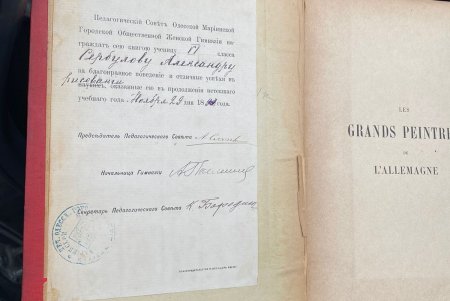 Педагогическій Совѣтъ Одесской Маріинской
Городской Общественной Женской Гимназіи на-
граждаетъ сею книгою ученицу VI класса
Вербулову Александру
за благонравное поведеніе и отличные успѣхи въ
рисованіи
наукахъ, оказанные ею въ продолженіи истекшаго
учебнаго года Ноября 22 дня 18 года.
Предсѣдатель Педагогическаго Совѣта
Начальница Гимназіи
Секретарь Педагогическаго Совѣта К.
LES
GRANDS PEINTRE
DE
L'ALLEMAGNE